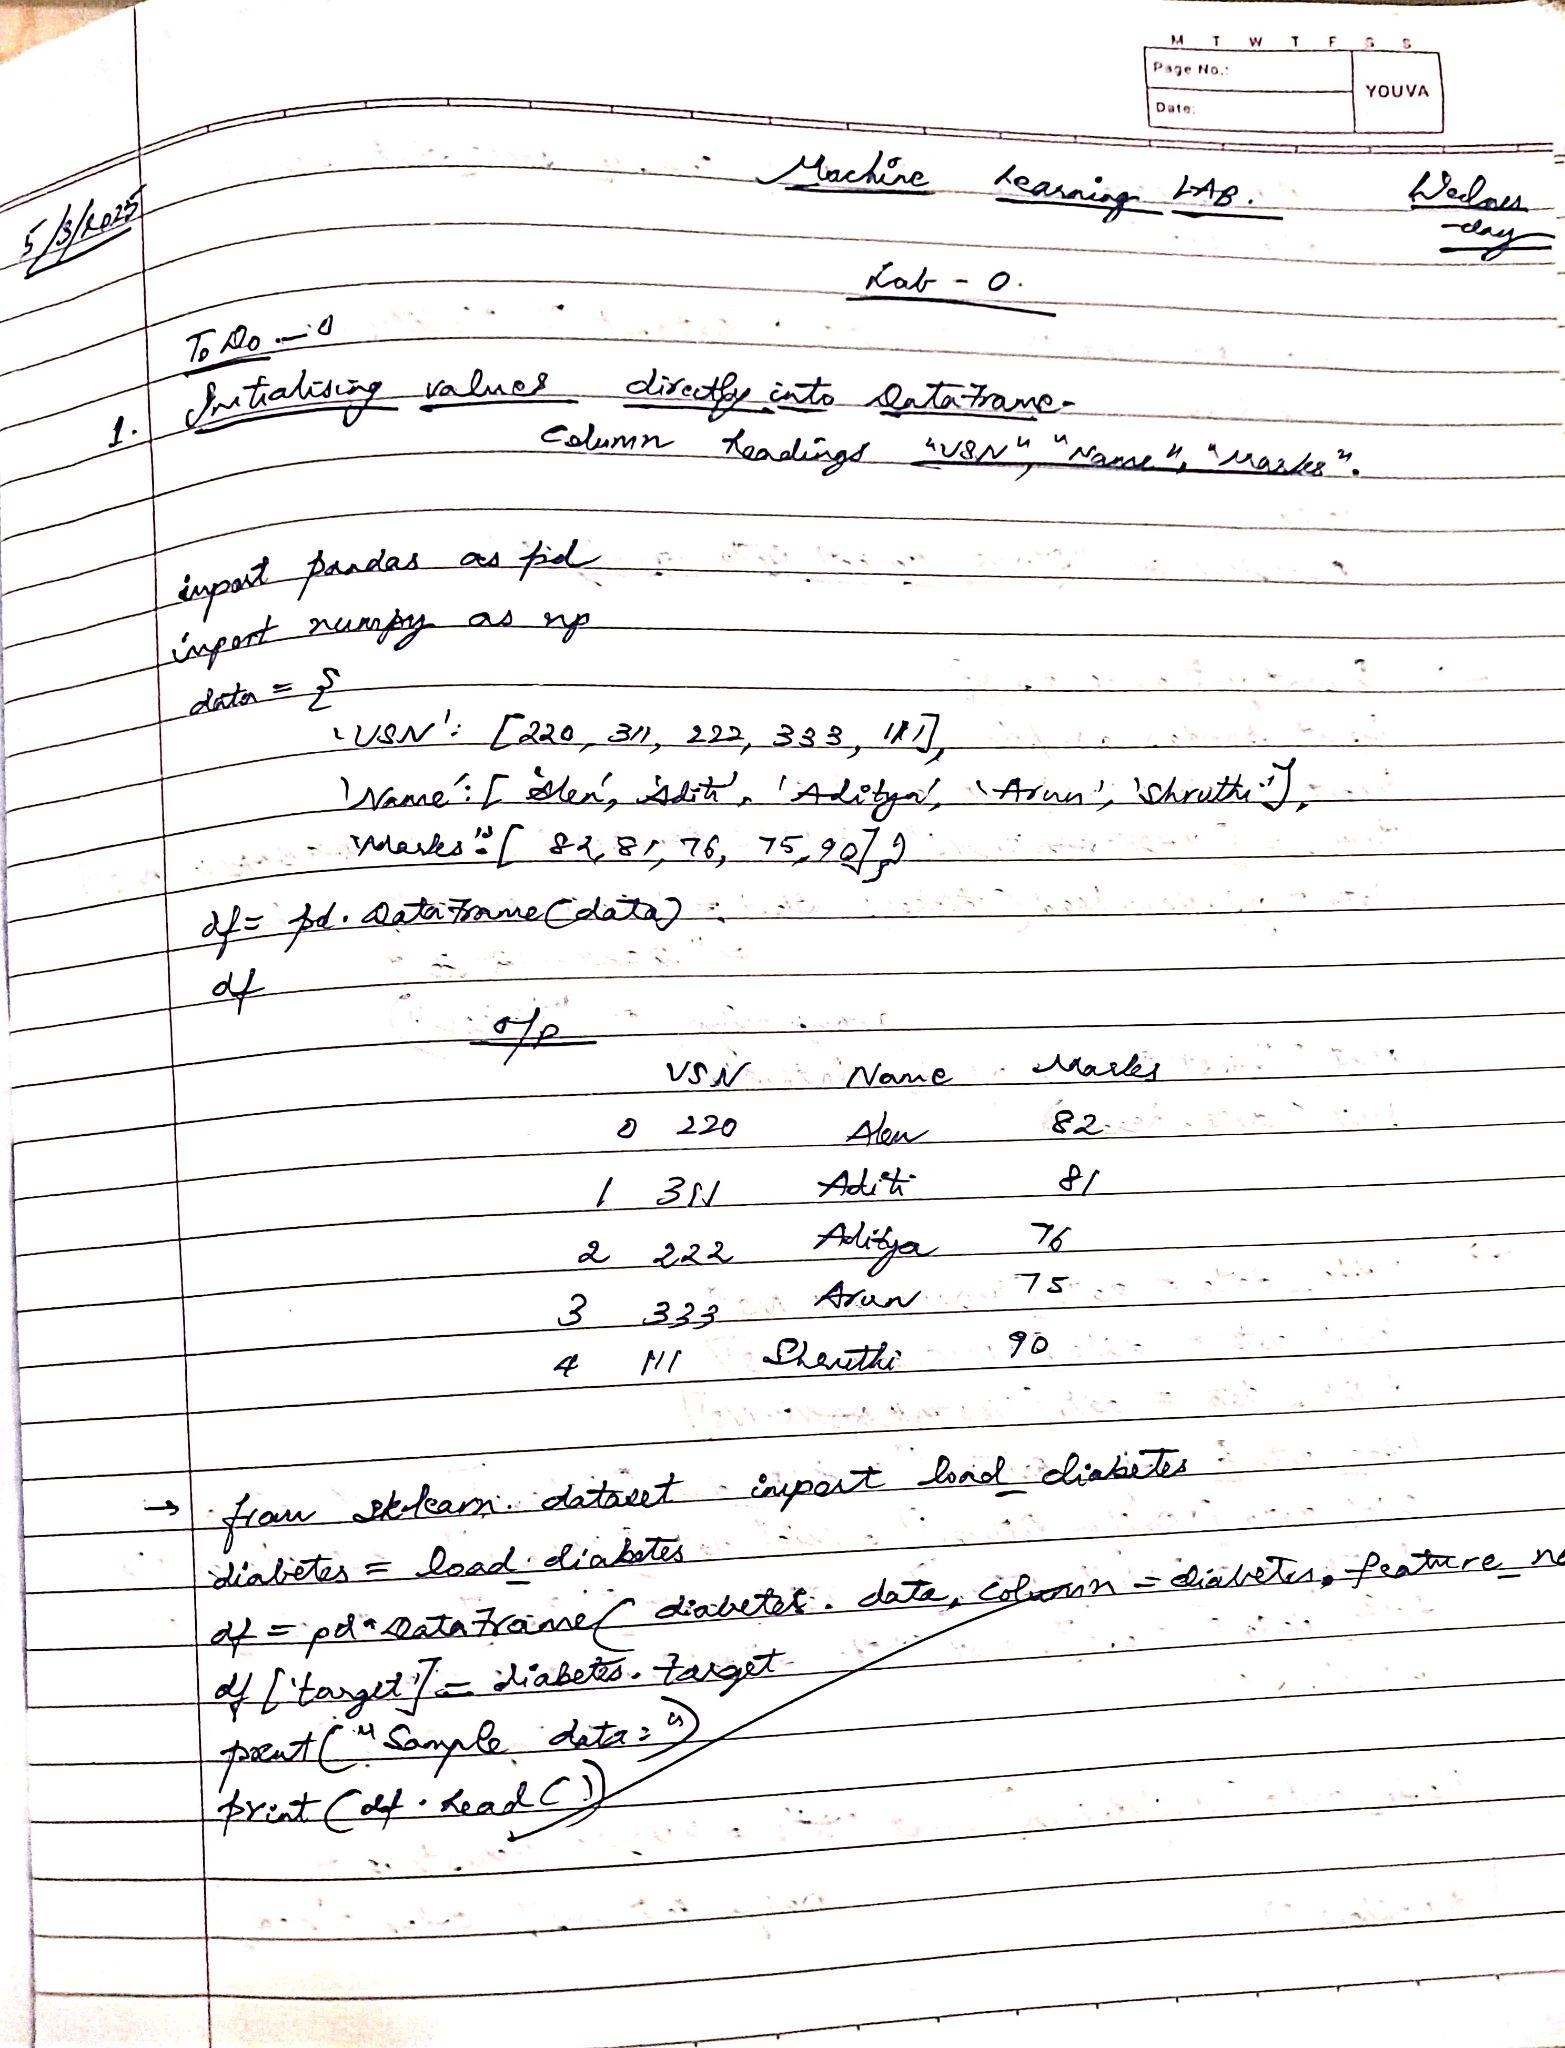 M T W T F S S
Page No.:
YOUVA
Date:
Machine Learning LAB.
Wednes
-day
5/3/2025
Lab - 0.
To Do - 0
1. Initialising values directly into DataFrame -
Column headings "USN", "Name", "Marks".
import pandas as pd
import numpy as np
data = {
'USN': [220, 311, 222, 333, 111],
'Name': ['Alen', 'Aditi', 'Aditya', 'Arun', 'Shruthi'],
'Marks': [82, 81, 76, 75, 90]}
df = pd.DataFrame(data)
df
o/p
USN Name Marks
0 220 Alen 82
1 311 Aditi 81
2 222 Aditya 76
3 333 Arun 75
4 111 Shruthi 90
→ from sklearn.dataset import load_diabetes
diabetes = load_diabetes
df = pd.DataFrame(diabetes.data, column = diabetes.feature_na
df['target'] = diabetes.target
print("Sample data:")
print(df.head())